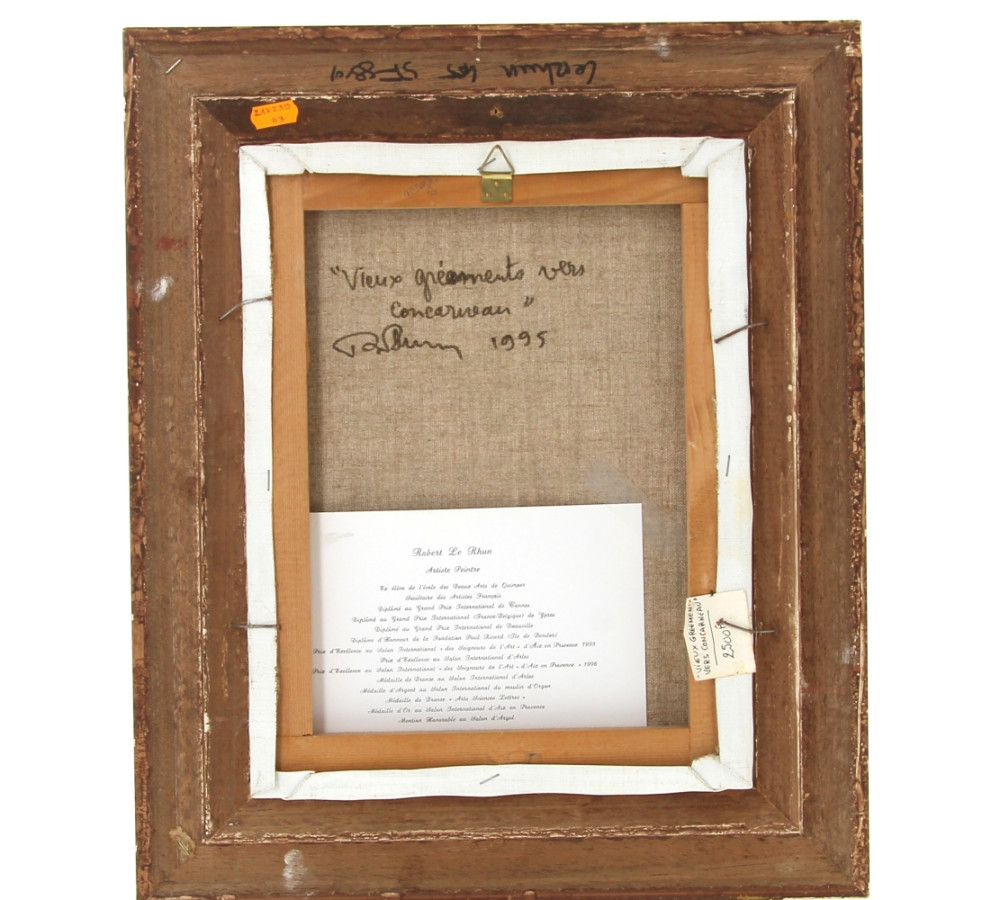 217239
03
"Vieux gréements vers
Concarneau"
1995
Robert Le Rhun
Artiste Peintre
Ex élève de l'école des Beaux Arts de Quimper
Sociétaire des Artistes Français
Diplômé au Grand Prix International de Cannes
Diplômé au Grand Prix International (France-Belgique) de Ypres
Diplômé au Grand Prix International de Deauville
Diplôme d'Honneur de la Fondation Paul Ricard (Ile de Bendor)
Prix d'Excellence au Salon International « des Seigneurs de l'Art » d'Aix en Provence 1995
Prix d'Excellence au Salon International d'Arles
Prix d'Excellence au Salon International « des Seigneurs de l'Art » d'Aix en Provence - 1996
Médaille de Bronze au Salon International d'Arles
Médaille d'Argent au Salon International du moulin d'Orgon
Médaille de Bronze « Arts Sciences Lettres »
Médaille d'Or au Salon International d'Aix en Provence
Mention Honorable au Salon d'Argol
"VIEUX GREEMENTS
VERS CONCARNEAU"
2500 F